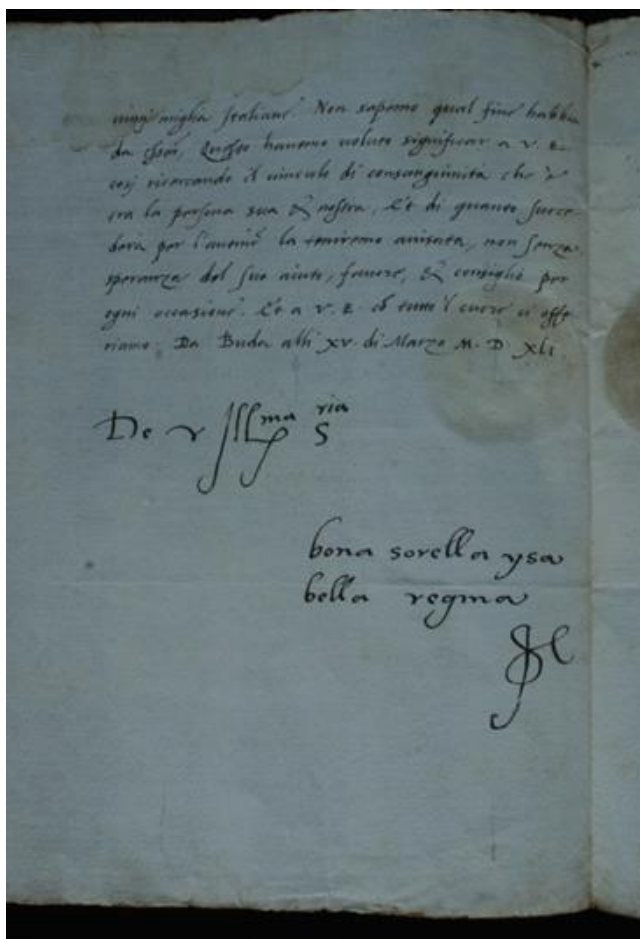 miglia Italiane. Non sapemo qual fine habbia
da Questo havemo voluto significar a V. E.
cosi ricercando il vinculo di consanguinità che è
tra la persona sua & nostra, Et di quanto succe-
derà per l'avenir la teniremo avisata, non senza
speranza del suo aiuto, favore, & consiglio per
ogni occasione. Et a V. E. cō tutto 'l cuore ci offe-
riamo. Da Buda alli XV. di Marzo M. D XLI.
De v Ill^ma S^ria
bona sorella ysa
bella regina